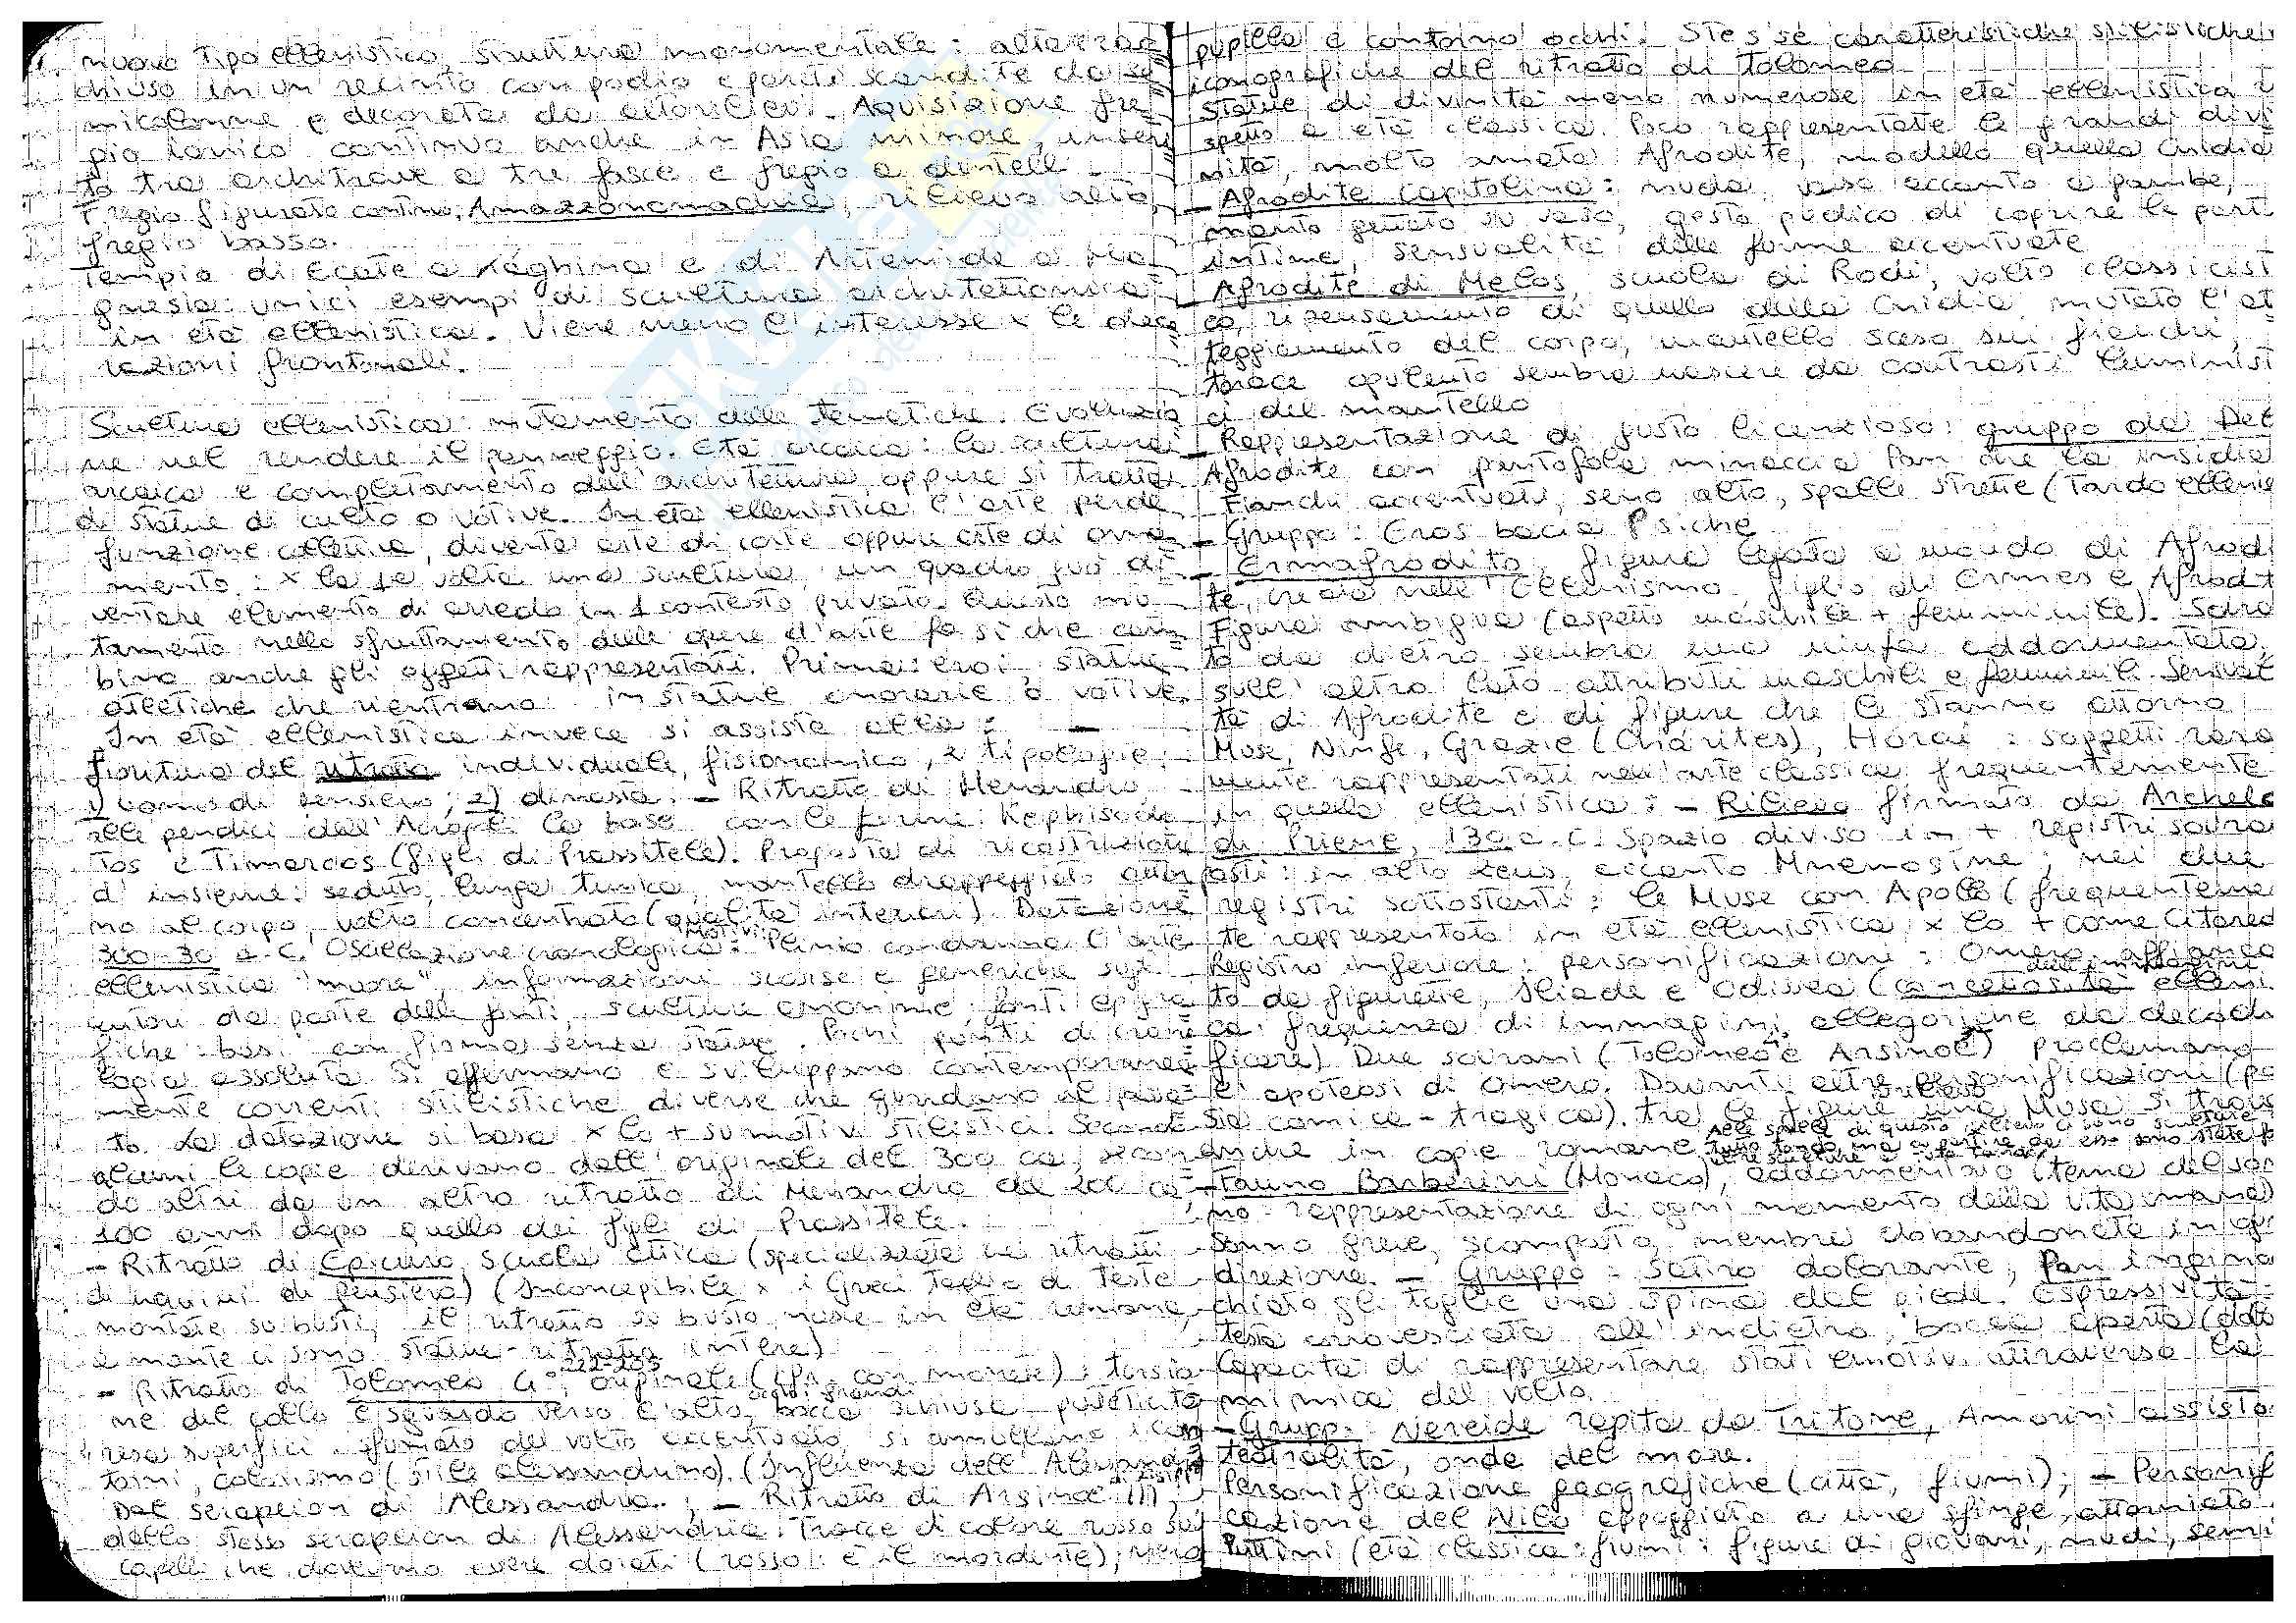 nuovo tipo ellenistico, struttura monumentale: altare rac
chiuso in un recinto con podio e pareti scandite da se
micolonne e decorate da altorilievi. Aquisizione fre
gio ionico continuo anche in Asia minore, inseri
to tra architrave a tre fasce e fregio a dentelli.
Fregio figurato continuo, Amazzonomachia, rilievo alto,
fregio basso.
Tempio di Ecate a Laghina e di Artemide a Ma
gnesia: unici esempi di scultura architettonica
in età ellenistica. Viene meno l'interesse x le deco
razioni frontonali.
Scultura ellenistica: mutamento delle tematiche. Evoluzio
ne nel rendere il panneggio. Età arcaica: la scultura
arcaica è completamento dell'architettura oppure si tratta
di statue di culto o votive. In età ellenistica l'arte perde
funzione collettiva, diventa arte di corte oppure arte di orna
mento: x la 1a volta una scultura, un quadro può di
ventare elemento di arredo in 1 contesto privato. Questo mu
tamento nello sfruttamento delle opere d'arte fa sì che cam
bino anche gli oggetti rappresentati. Prima: eroi, statue
atletiche che rientrano in statue onorarie o votive.
In età ellenistica invece si assiste alla:
fioritura del ritratto individuale, fisionomico, 2 tipologie:
1) uomini di pensiero, 2) dinasta. - Ritratto di Menandro
alle pendici dell'Acropoli la base con le firme: Kephisodo
tos e Timarcos (figli di Prassitele). Proposta di ricostruzione
d'insieme: seduto, lunga tunica, mantello drappeggiato attor
no al corpo, volto concentrato (qualità interiori). Datazione
300-30 a.C. Oscillazione cronologica: Motivi: Plinio condanna l'arte
ellenistica "muore", informazioni scarse e generiche sugli
autori da parte delle fonti, sculture anonime, fonti epigra
fiche: basi con firma senza statue. Pochi punti di crono
logia assoluta. Si affermano e sviluppano contemporanea
mente correnti stilistiche diverse che guardano al passa
to. La datazione si basa x lo + su motivi stilistici. Secondo
alcuni le copie derivano dall'originale del 300 ca, secon
do altri da un altro ritratto di Menandro del 200 ca,
100 anni dopo quello dei figli di Prassitele.
- Ritratto di Epicuro, scuola attica (specializzata nei ritratti
di uomini di pensiero) (Inconcepibile x i Greci taglio di teste
montate su busti, il ritratto su busto nasce in età romana,
a monte ci sono statue-ritratto intere)
- Ritratto di Tolomeo 4°, 222-205 originale (cfr. con monete): torsio
ne del collo e sguardo verso l'alto, occhi grandi bocca schiusa, patetica
resa superfici: sfumato del volto accentuato, si annullano i con
torni, colorismo (stile alessandrino). (Influenza dell'Alessandro di Lisippo)
Dal serapeion di Alessandria.; - Ritratto di Arsinoe III,
dallo stesso serapeion di Alessandria: tracce di colore rosso sui
capelli che dovevano essere dorati (rosso: è il mordente), nero
pupilla e contorno occhi. Stesse caratteristiche stilistiche
iconografiche del ritratto di Tolomeo.
Statue di divinità meno numerose in età ellenistica ri
spetto a età classica. Poco rappresentate le grandi divi
nità, molto amata Afrodite, modello quella Cnidia
- Afrodite Capitolina: nuda, vaso accanto a gambe,
manto gettato su vaso, gesto pudico di coprire le parti
intime, sensualità delle forme accentuate
- Afrodite di Melos, scuola di Rodi, volto classicisti
co, ripensamento di quello della Cnidia, mutato l'at
teggiamento del corpo, mantello sceso sui fianchi,
torace opulento sembra nascere da contrasti luminist
ci del mantello
- Rappresentazione di gusto licenzioso: gruppo da Del
Afrodite con pantofola minaccia Pan che la insidia
Fianchi accentuati, seno alto, spalle strette (tardo elleni
- Gruppo: Eros bacia Psiche
- Ermafrodito, figura legata a mondo di Afrodi
te, creata nell'Ellenismo. figlio di Ermes e Afrodit
Figura ambigua (aspetto maschile + femminile).
to da dietro sembra una ninfa addormentata,
sull'altro lato attributi maschili e femminili. Sensual
tà di Afrodite e di figure che le stanno attorno
Muse, Ninfe, Grazie (Charites), Horai: soggetti rara
mente rappresentati nell'arte classica, frequentemente
in quella ellenistica: - Rilievo firmato da Archela
di Priene, 130 a.C. Spazio diviso in + registri sovra
posti: in alto Zeus, accanto Mnemosine; nei due
registri sottostanti: le Muse con Apollo (frequenteme
te rappresentato in età ellenistica x lo + come Citaredo
Registro inferiore: personificazioni: Omero affianca
to da figurette, Iliade e Odissea (concettosità dell'immagini elleni
ca: frequenza di immagini allegoriche da decodi
ficare). Due sovrani (Tolomeo e Arsinoe) proclamano
l'apoteosi di Omero. Davanti altre personificazioni (poe
sia comica - tragica). tra le figure del rilievo una Musa si trova
anche in copie romane. Alle spalle di questo rilievo ci sono sculture a
tutto tondo, ma a partire da esso sono state fa
- Fauno Barberini (Monaco), addormentato (tema del son
no: rappresentazione di ogni momento della vita umana)
Sonno greve, scomposto, membra abbandonate in ogni
direzione. - Gruppo: Satiro dolorante, Pan inginoc
chiato gli toglie una spina dal piede. Espressività
testa arrovesciata all'indietro, bocca aperta (dolo
Capacità di rappresentare stati emotivi attraverso la
mimica del volto.
- Gruppo: Nereide rapita da Tritone, Amorini assisto
teatralità, onde del mare.
Personificazione geografiche (città, fiumi); - Personifi
cazione del Nilo appoggiato a una sfinge, attorniato
Puttini (età classica: fiumi: figure di giovani, nudi, semi